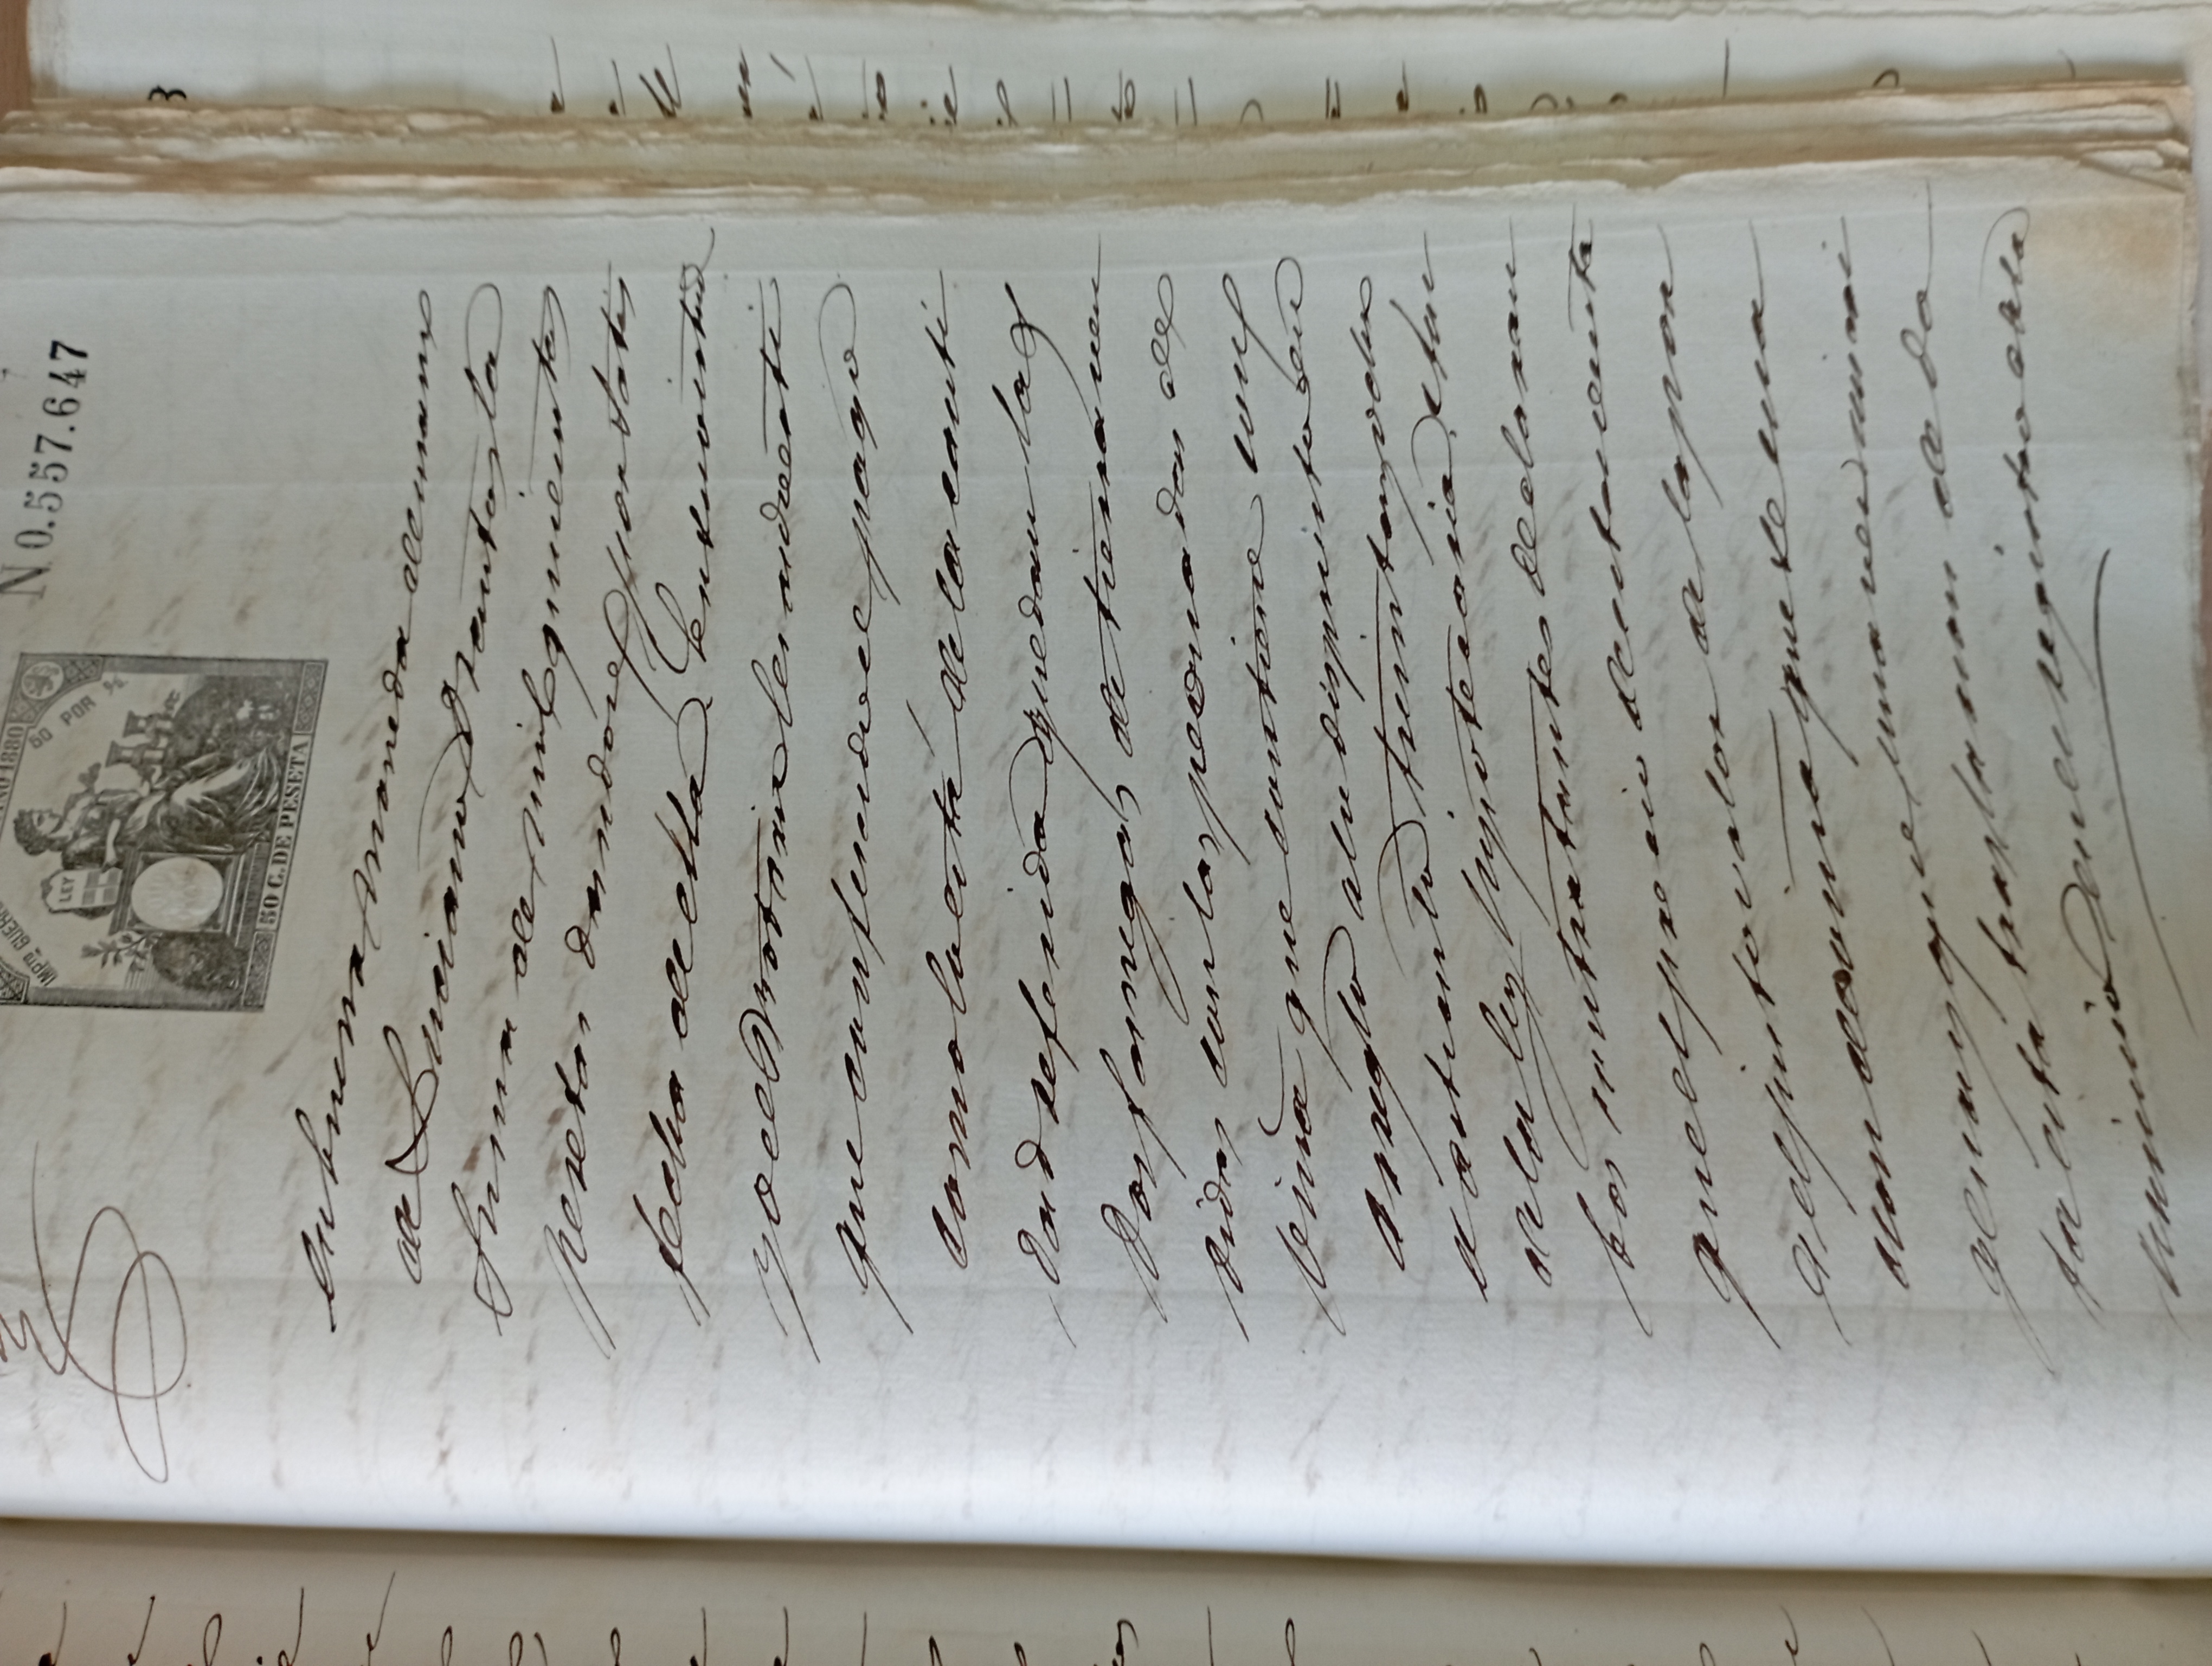 IMPto GUERRA AÑO 1880 50 POR %
N 0.557.647
LEY
50 C. DE PESETA
en buena moneda de manos
de Luciano Santos la
suma de mil quinientas
pesetas dandose por satis
fecha de ella. En su virtud
yo el Notario les adverti
que confesado el pago
como lo está de la canti
dad referida quedan las
dos fanegas de tierra ven
didas con las peonadas de
viña que contiene con
arreglo a lo dispuesto en
el articulo treinta y ocho
de la ley hipotecaria. Am
bos contratantes declaran
que el precio de esta venta
es el justo valor de la por
cion de viña que se ena
gena y que una vez inscri
ta esta traslacion de do
minio en el registro de la